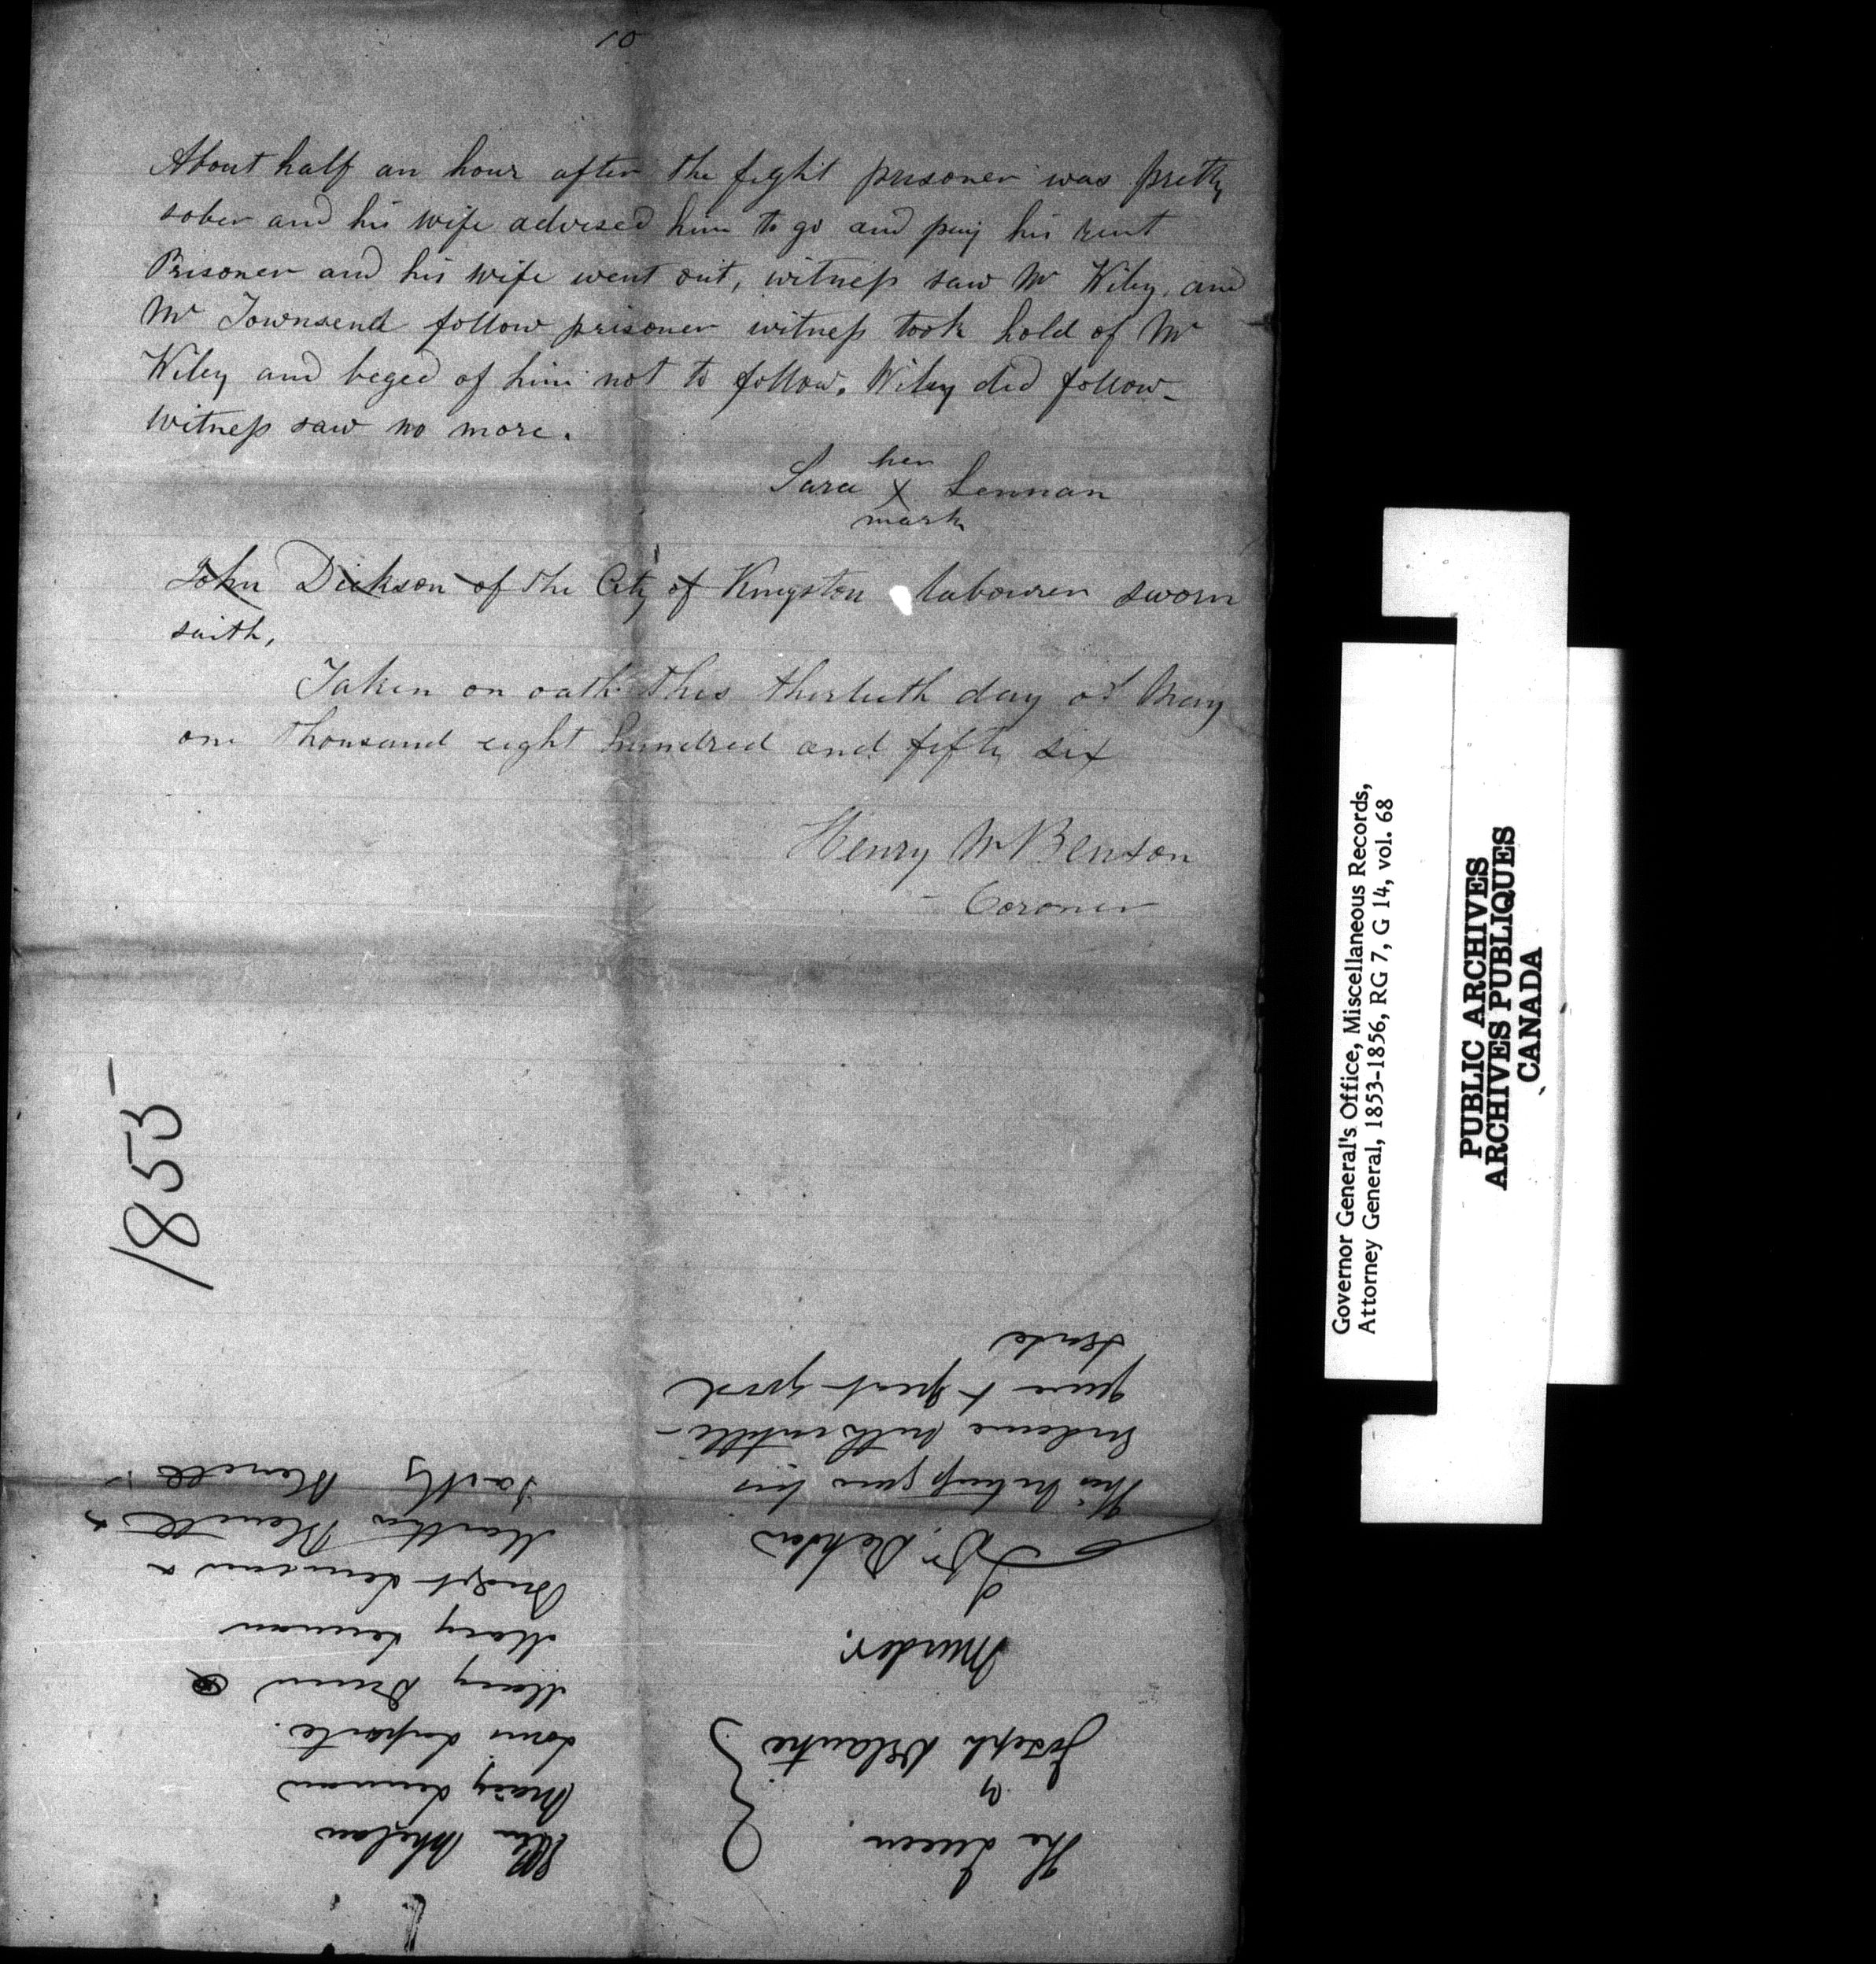 10
About half an hour after the fight prisoner was pretty
sober and his wife advised him to go and pay his rent
Prisoner and his wife went out, witness saw Mr Wiley and
Mr Townsend follow prisoner witness took hold of Mr
Wiley and beged of him not to follow. Wiley did follow
witness saw no more.
her
Sara X Lennan
mark
John Dickson of the City of Kingston labourer sworn
saith,
Taken on oath this thirtieth day of May
one thousand eight hundred and fifty six
Henry W Benson
Coroner
1855
The Queen
v
Joseph
Murder.
This Witness gives his
Evidence with
& great good
sense
Ellen Whelan
Mary Lennan
Louis Laporte
Mary
Mary Lennan
Bridget Lennan
Martha
Governor General's Office, Miscellaneous Records,
Attorney General, 1853-1856, RG 7, G 14, vol. 68
PUBLIC ARCHIVES
ARCHIVES PUBLIQUES
CANADA